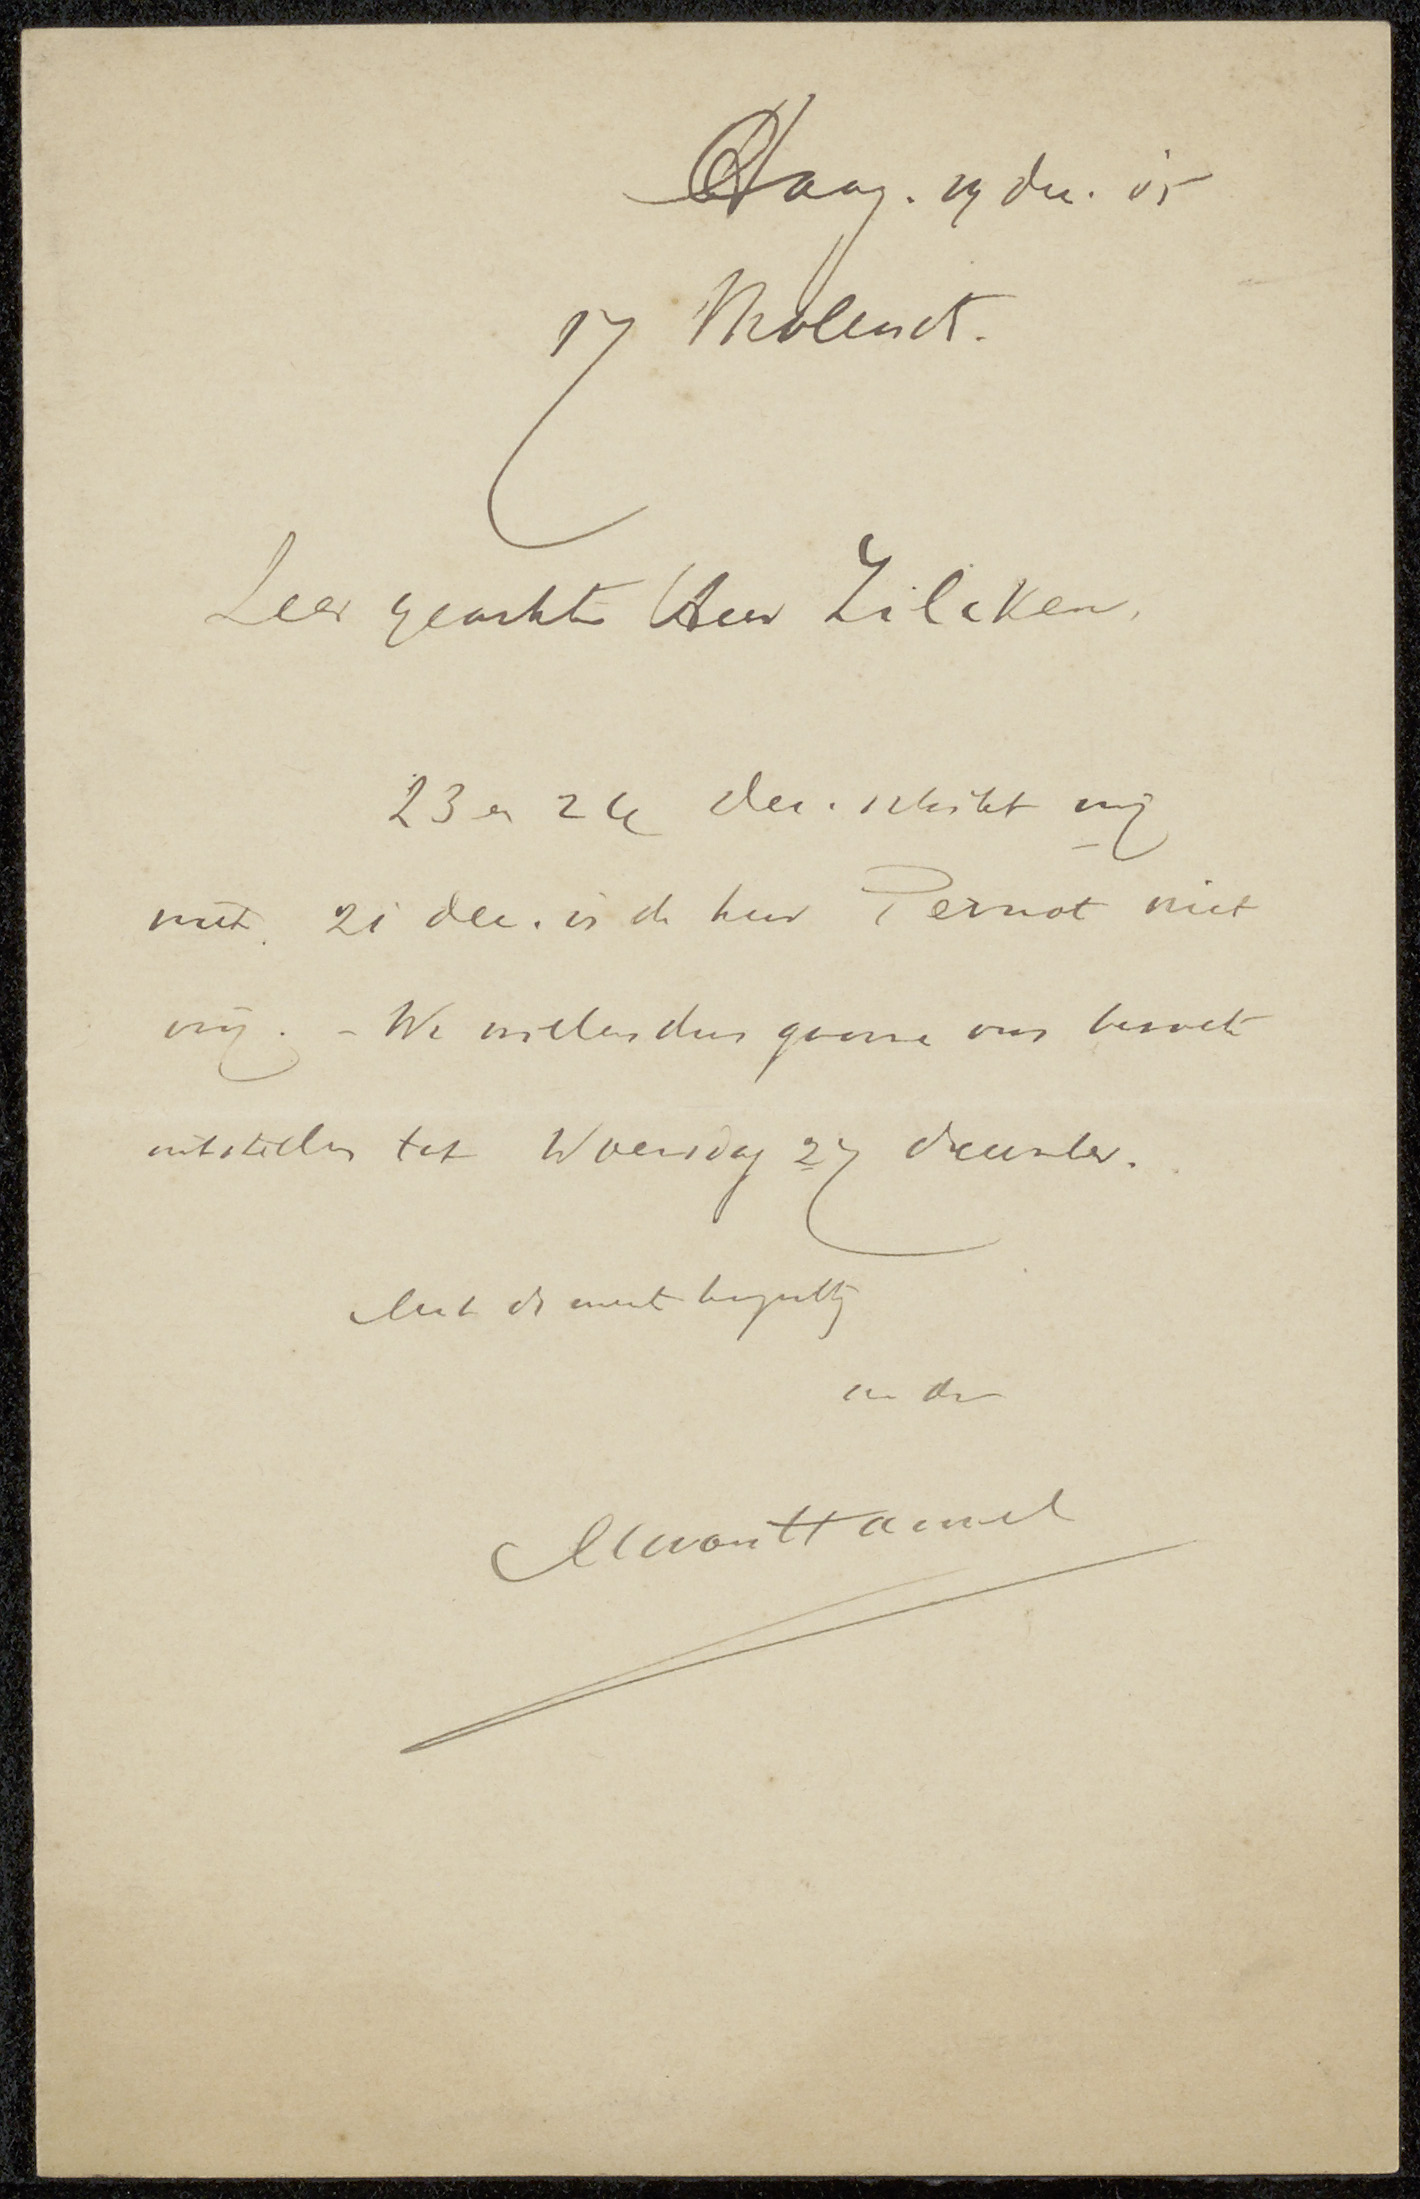 Haag. 19 dec. 05
17 Molenstr.
Zeer geachte Heer Zilcken,
23 en 24 dec. schikt mij
niet. 21 dec. is de heer Pernot niet
vrij. - We willen dus gaarne ons bezoek
uitstellen tot Woensdag 27 december.
Met de meest